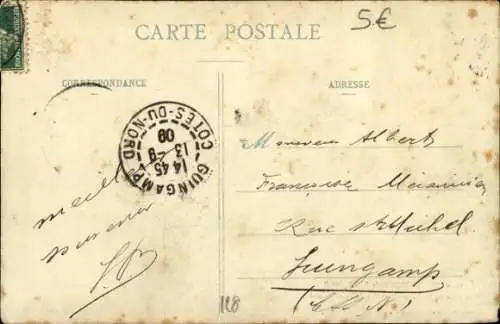 CARTE POSTALE
5€
CORRESPONDANCE
ADRESSE
GUINGAMP
CÔTES-DU-NORD
14 45
13 - 9
09
Monsieur Albert
Françoise
Rue St Michel
Guingamp
(C. d. N.)
128